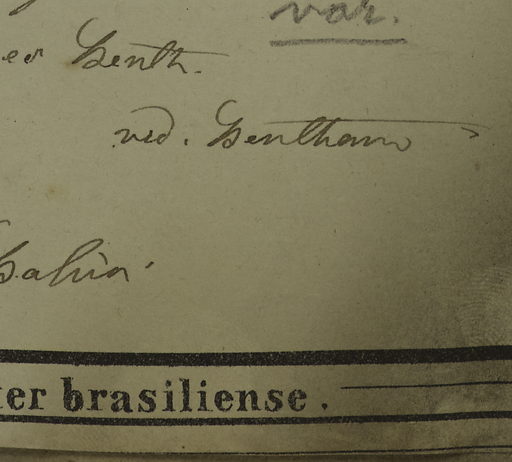 var.
es Benth.
ved. Bentham
Bahia
ter brasiliense.